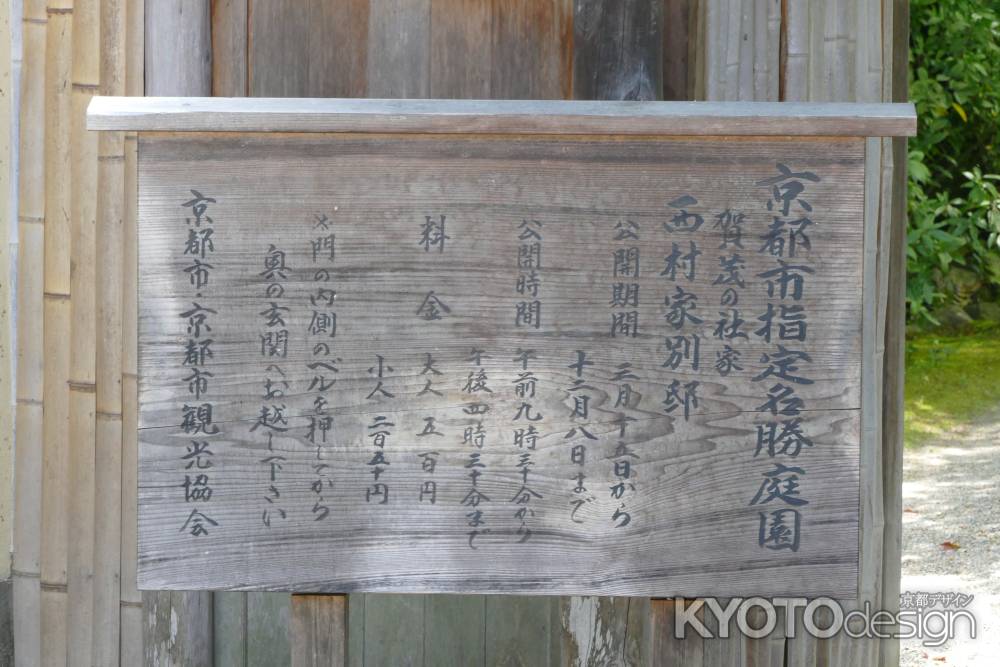 京都市指定名勝庭園
賀茂の社家
西村家別邸
公開期間 三月十五日から
十二月八日まで
公開時間 午前九時三十分から
午後四時三十分まで
料金 大人 五百円
小人 二百五十円
※門の内側のベルを押してから
奥の玄関へお越し下さい
京都市・京都市観光協会
KYOTOdesign
京都デザイン